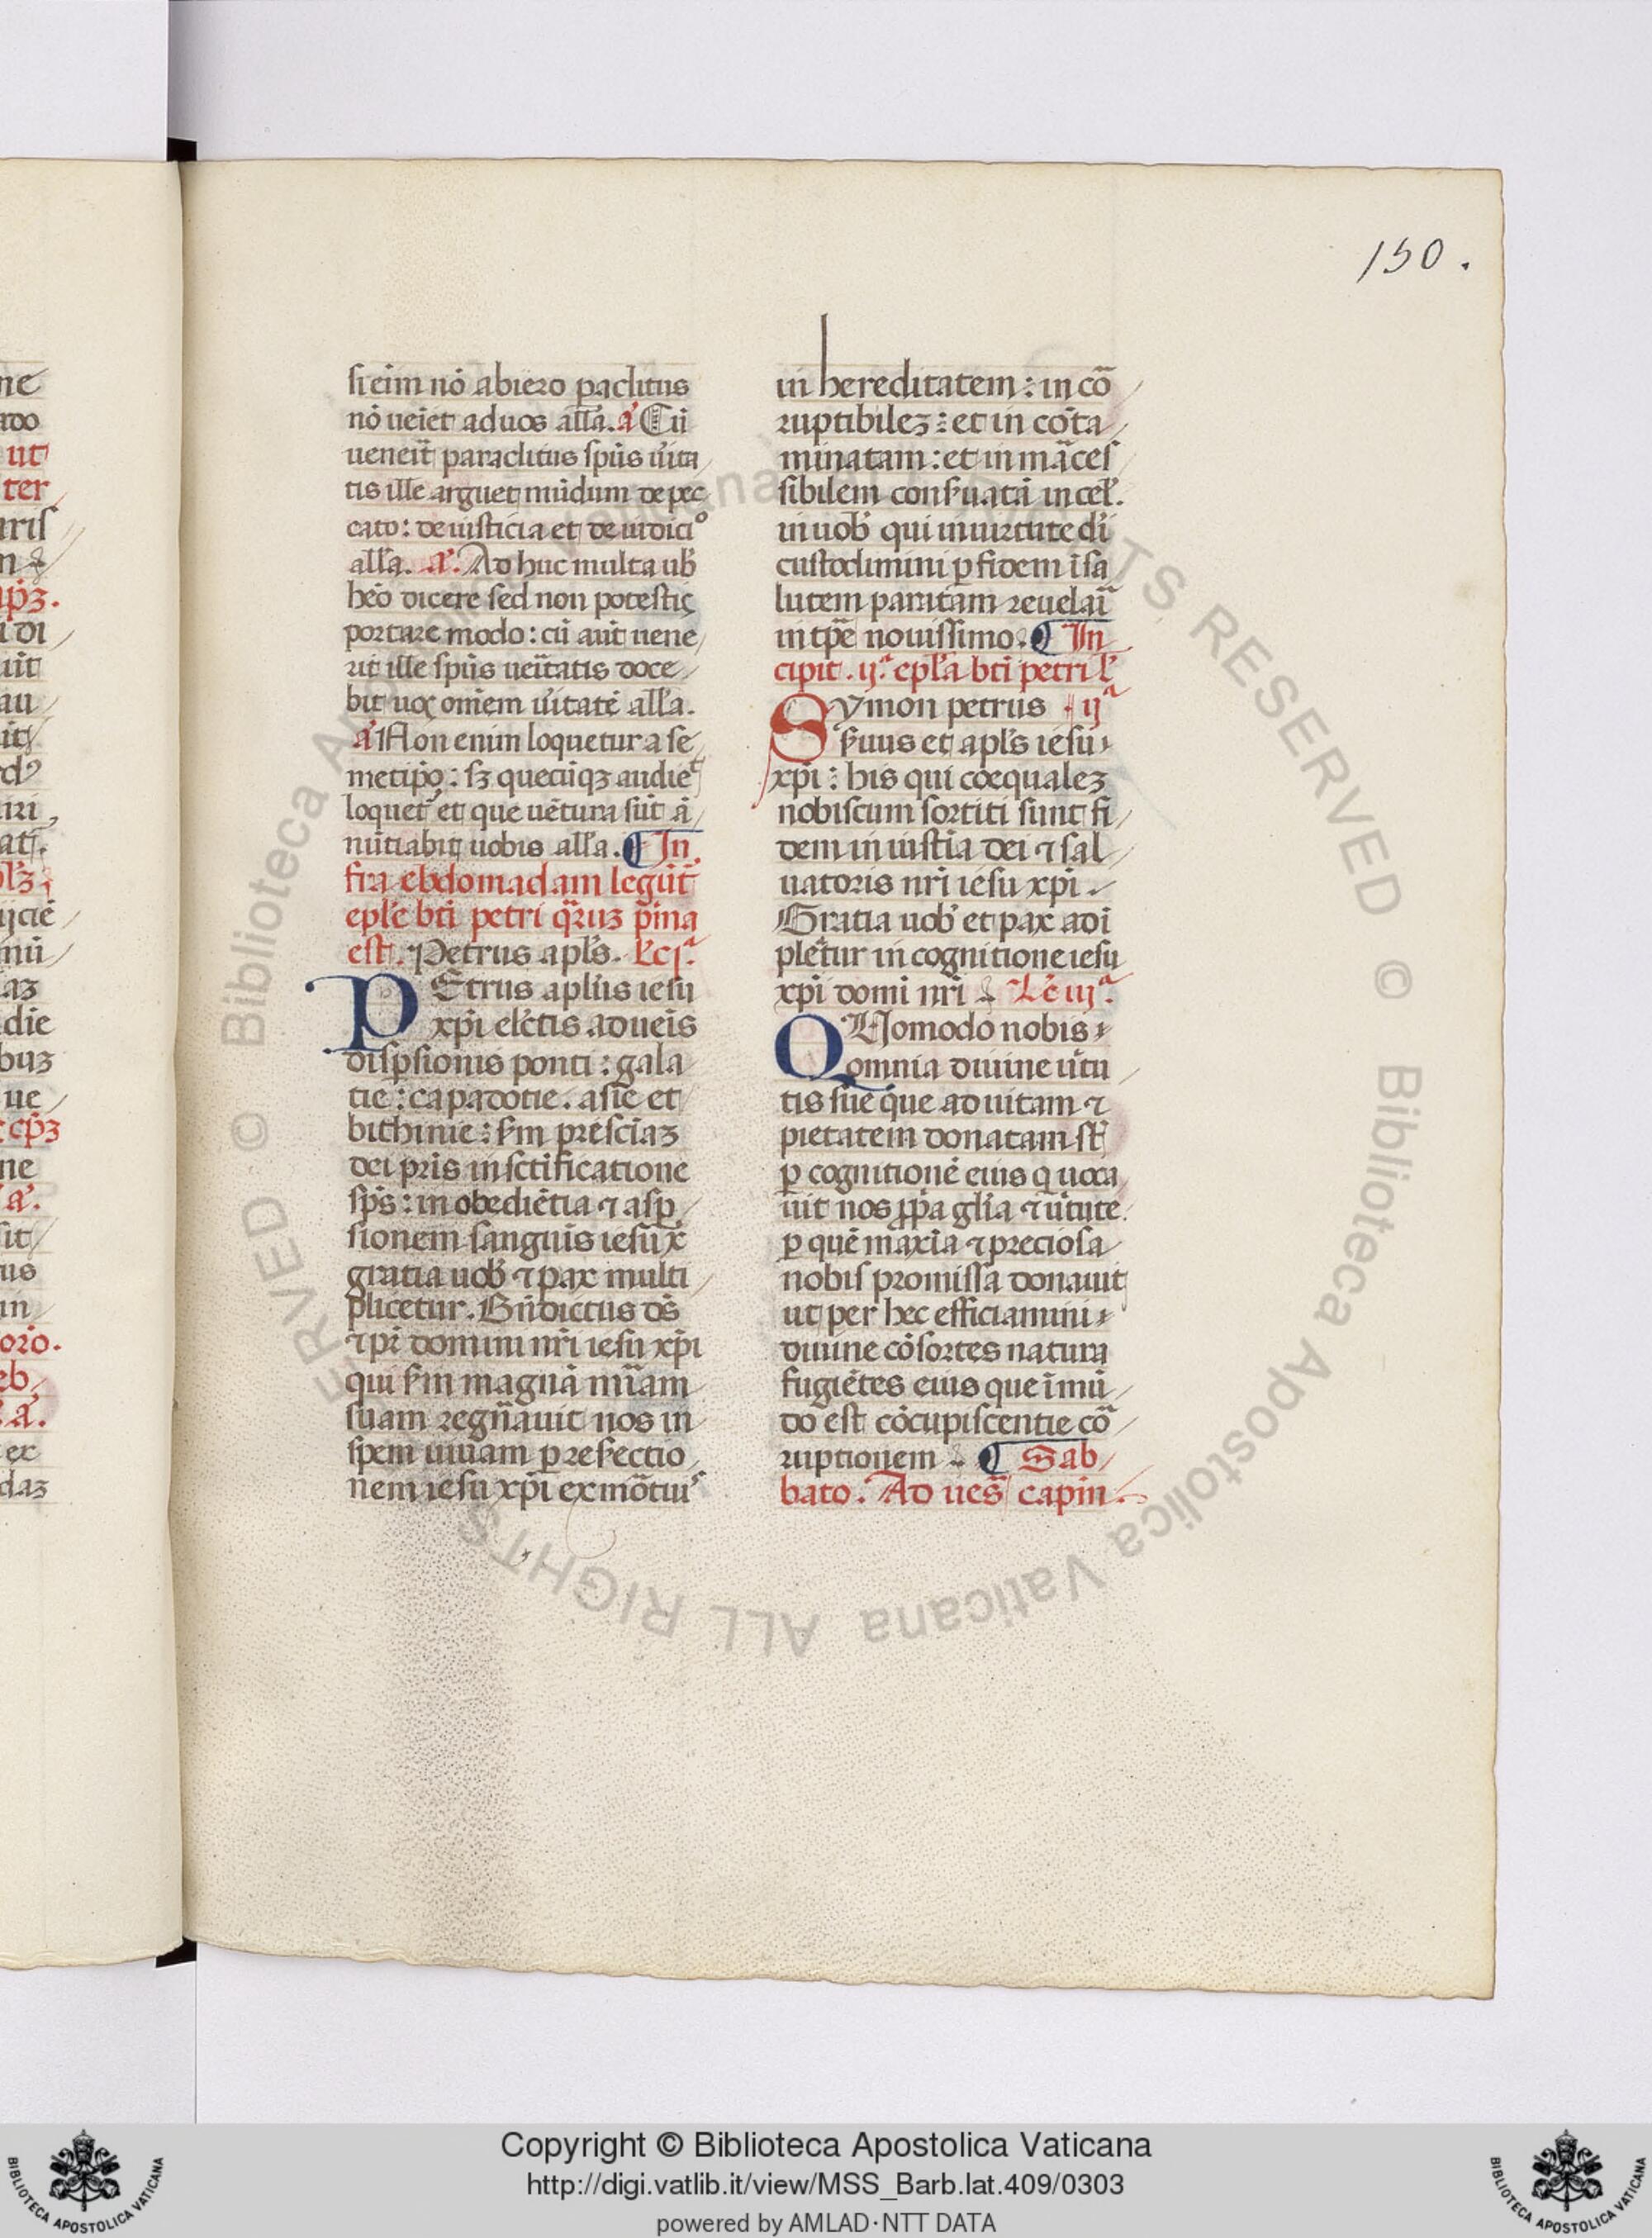 150.
si eim nō abiero paclitus
nō ueiet ad uos alla. a Cū
ueneit paraclitus spūs uita
tis ille arguet mūdum de pec
cato: de iusticia et de iudicio
alla. a. Adhuc multa ub
heo dicere sed non potestis
portare modo: cū aut uene
rit ille spūs ueitatis doce
bit uos omem uitatē alla.
a Non enim loquetur a se
metipo: sz quecūqz audiet
loquet et que uētura sūt ā
nūtiabit uobis alla. In
fra ebdomadam legūt
eple bti petri qruz pima
est. Petrus apls. Lc j.
PEtrus aplus iesu
xpi elctis adueis
dispsionis ponti: gala
tie: capadotie. asie et
bithinie: sm presciaz
dei pris in sctificatione
sps: in obediētia ⁊ asp
sionem sanguis iesu x
gratia uob ⁊ pax multi
plicetur. Bndictus ds
⁊ pr domini nri iesu xpi
qui sm magnā miam
suam regnauit nos in
spem uiuam p resectio
nem iesu xpi ex mōtuis
in hereditatem: in cō
ruptibilez: et in cōta
minatam: et in māces
sibilem conseruatā in cel.
in uob qui in uirtute di
custodimini p fidem ī sa
lutem paratam reuelai
in tpe nouissimo. In
cipit .ij. epla bti petri l
Symon petrus ij
seruus et apls iesu
xpi: his qui coequalez
nobiscum sortiti sunt fi
dem in iustia dei ⁊ sal
uatoris nri iesu xpi.
Gratia uob et pax adi
pletur in cognitione iesu
xpi domi nri Lc iij.
QUomodo nobis
omnia diuine uitu
tis sue que ad uitam ⁊
pietatem donatam st
p cognitionē eius q uoca
uit nos ppa glia ⁊ uitute.
p quē maxia ⁊ preciosa
nobis promissa donauit
ut per hec efficiamini
diuine cōsortes natura
fugiētes eius que ī mū
do est cōcupiscentie cō
ruptionem Sab
bato. Ad ues capin.
Copyright © Biblioteca Apostolica Vaticana
http://digi.vatlib.it/view/MSS_Barb.lat.409/0303
powered by AMLAD·NTT DATA
BIBLIOTECA APOSTOLICA VATICANA
BIBLIOTECA APOSTOLICA VATICANA
© Biblioteca Apostolica Vaticana ALL RIGHTS RESERVED © Biblioteca Apostolica Vaticana ALL RIGHTS RESERVED